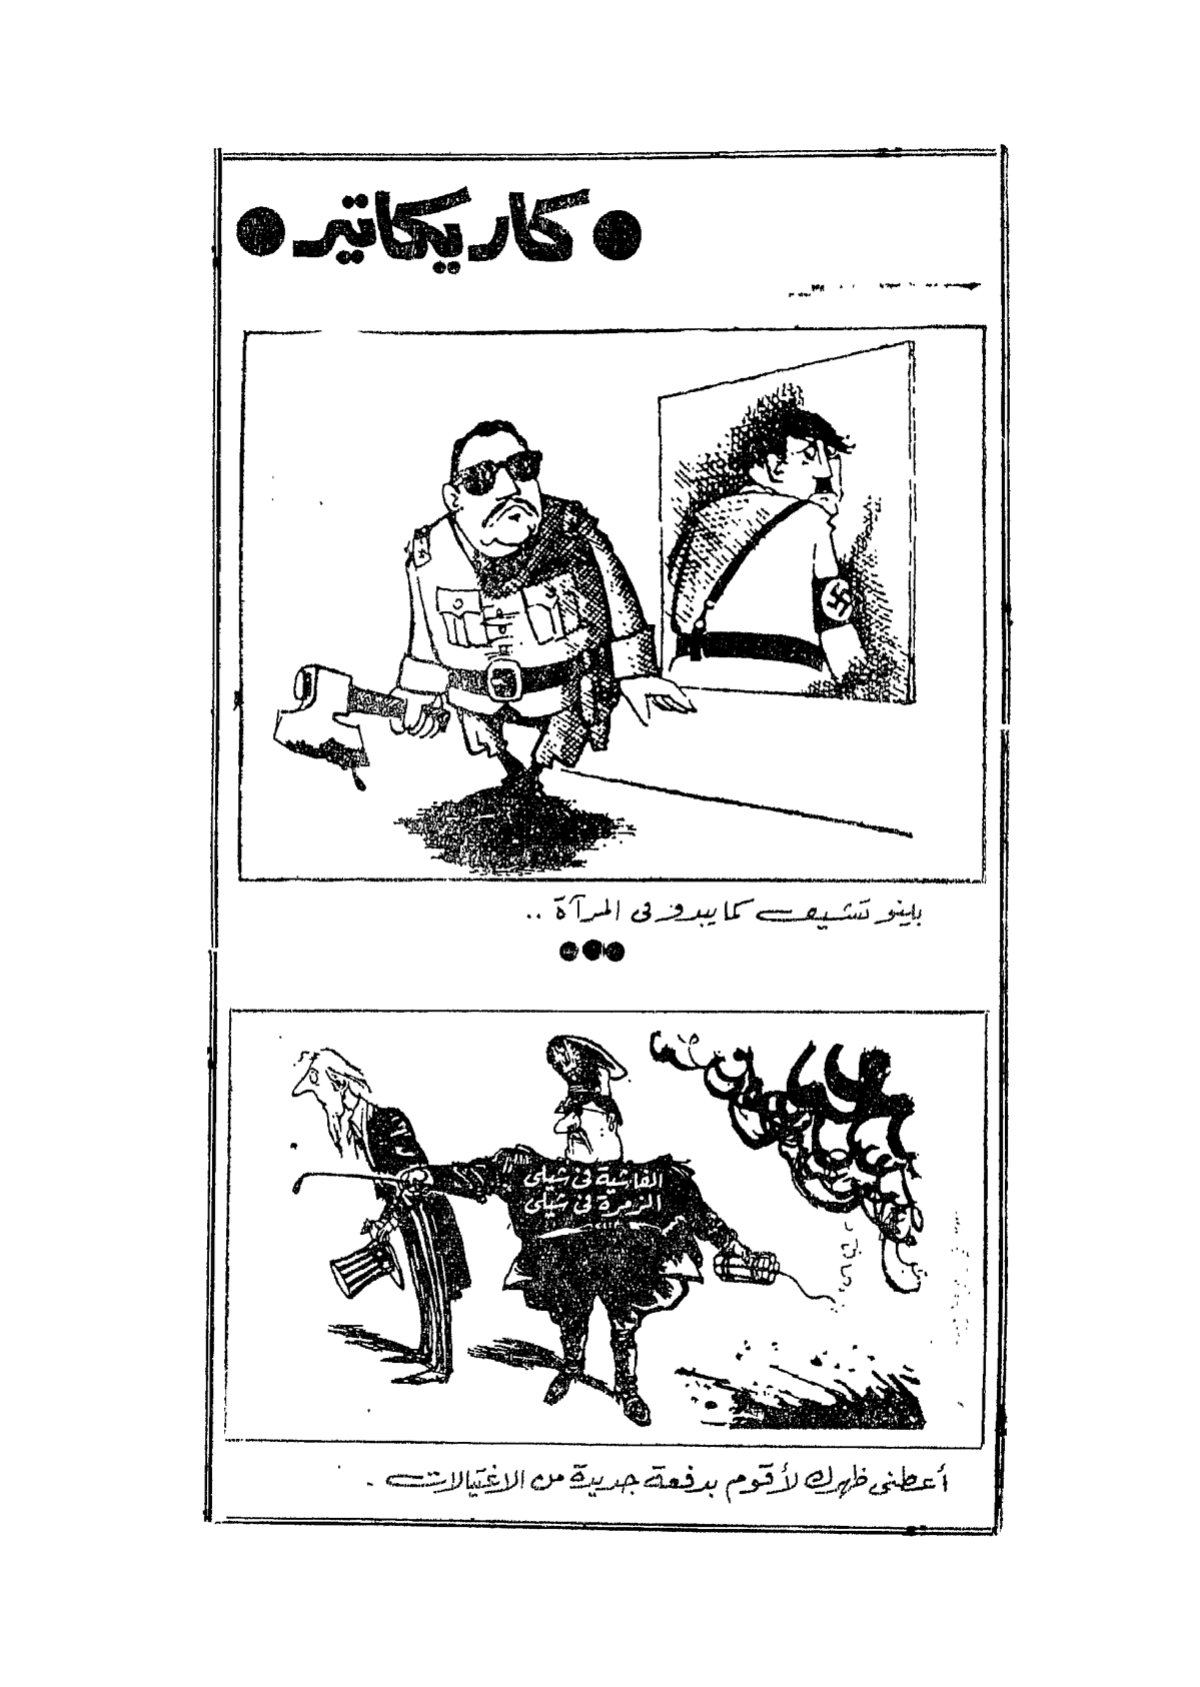 كاريكاتير
بلينو تشيف كما يبدو في المرآة ..
الفاشية في شيلي
الزمرة في شيلي
أعطني ظهرك لأقوم بدفعة جديدة من الاغتيالات .